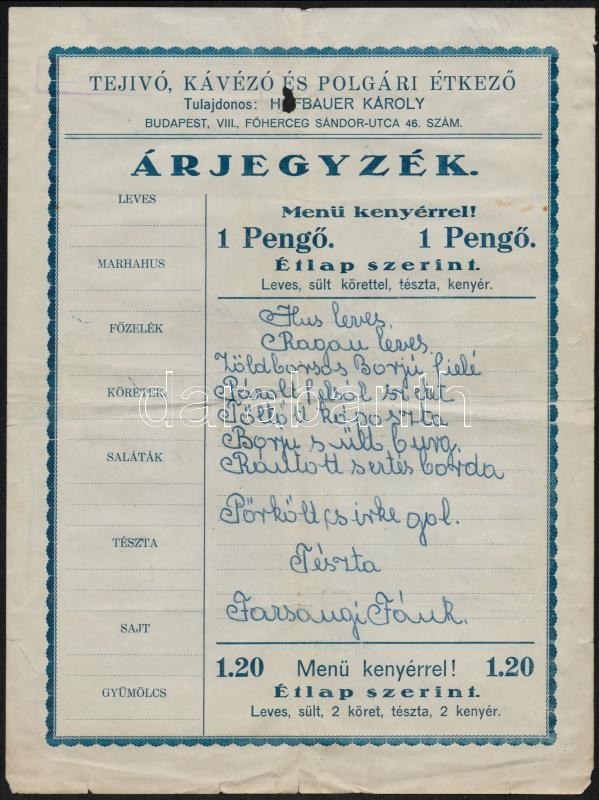 TEJIVÓ, KÁVÉZÓ ÉS POLGÁRI ÉTKEZŐ
Tulajdonos: HOFBAUER KÁROLY
BUDAPEST, VIII., FŐHERCEG SÁNDOR-UTCA 46. SZÁM.
ÁRJEGYZÉK.
LEVES
MARHAHUS
FŐZELÉK
KÖRETEK
SALÁTÁK
TÉSZTA
SAJT
GYÜMÖLCS
Menü kenyérrel!
1 Pengő. 1 Pengő.
Étlap szerint.
Leves, sült körettel, tészta, kenyér.
Hus leves
Ragau leves
Zöldborsós Borjú fielé
Párolt felsál
Töltött káposzta
Borju sült burg.
Rántott sertés borda
Pörkölt csirke gal.
Tészta
Farsangi Fánk.
1.20 Menü kenyérrel! 1.20
Étlap szerint.
Leves, sült, 2 köret, tészta, 2 kenyér.
darabanth